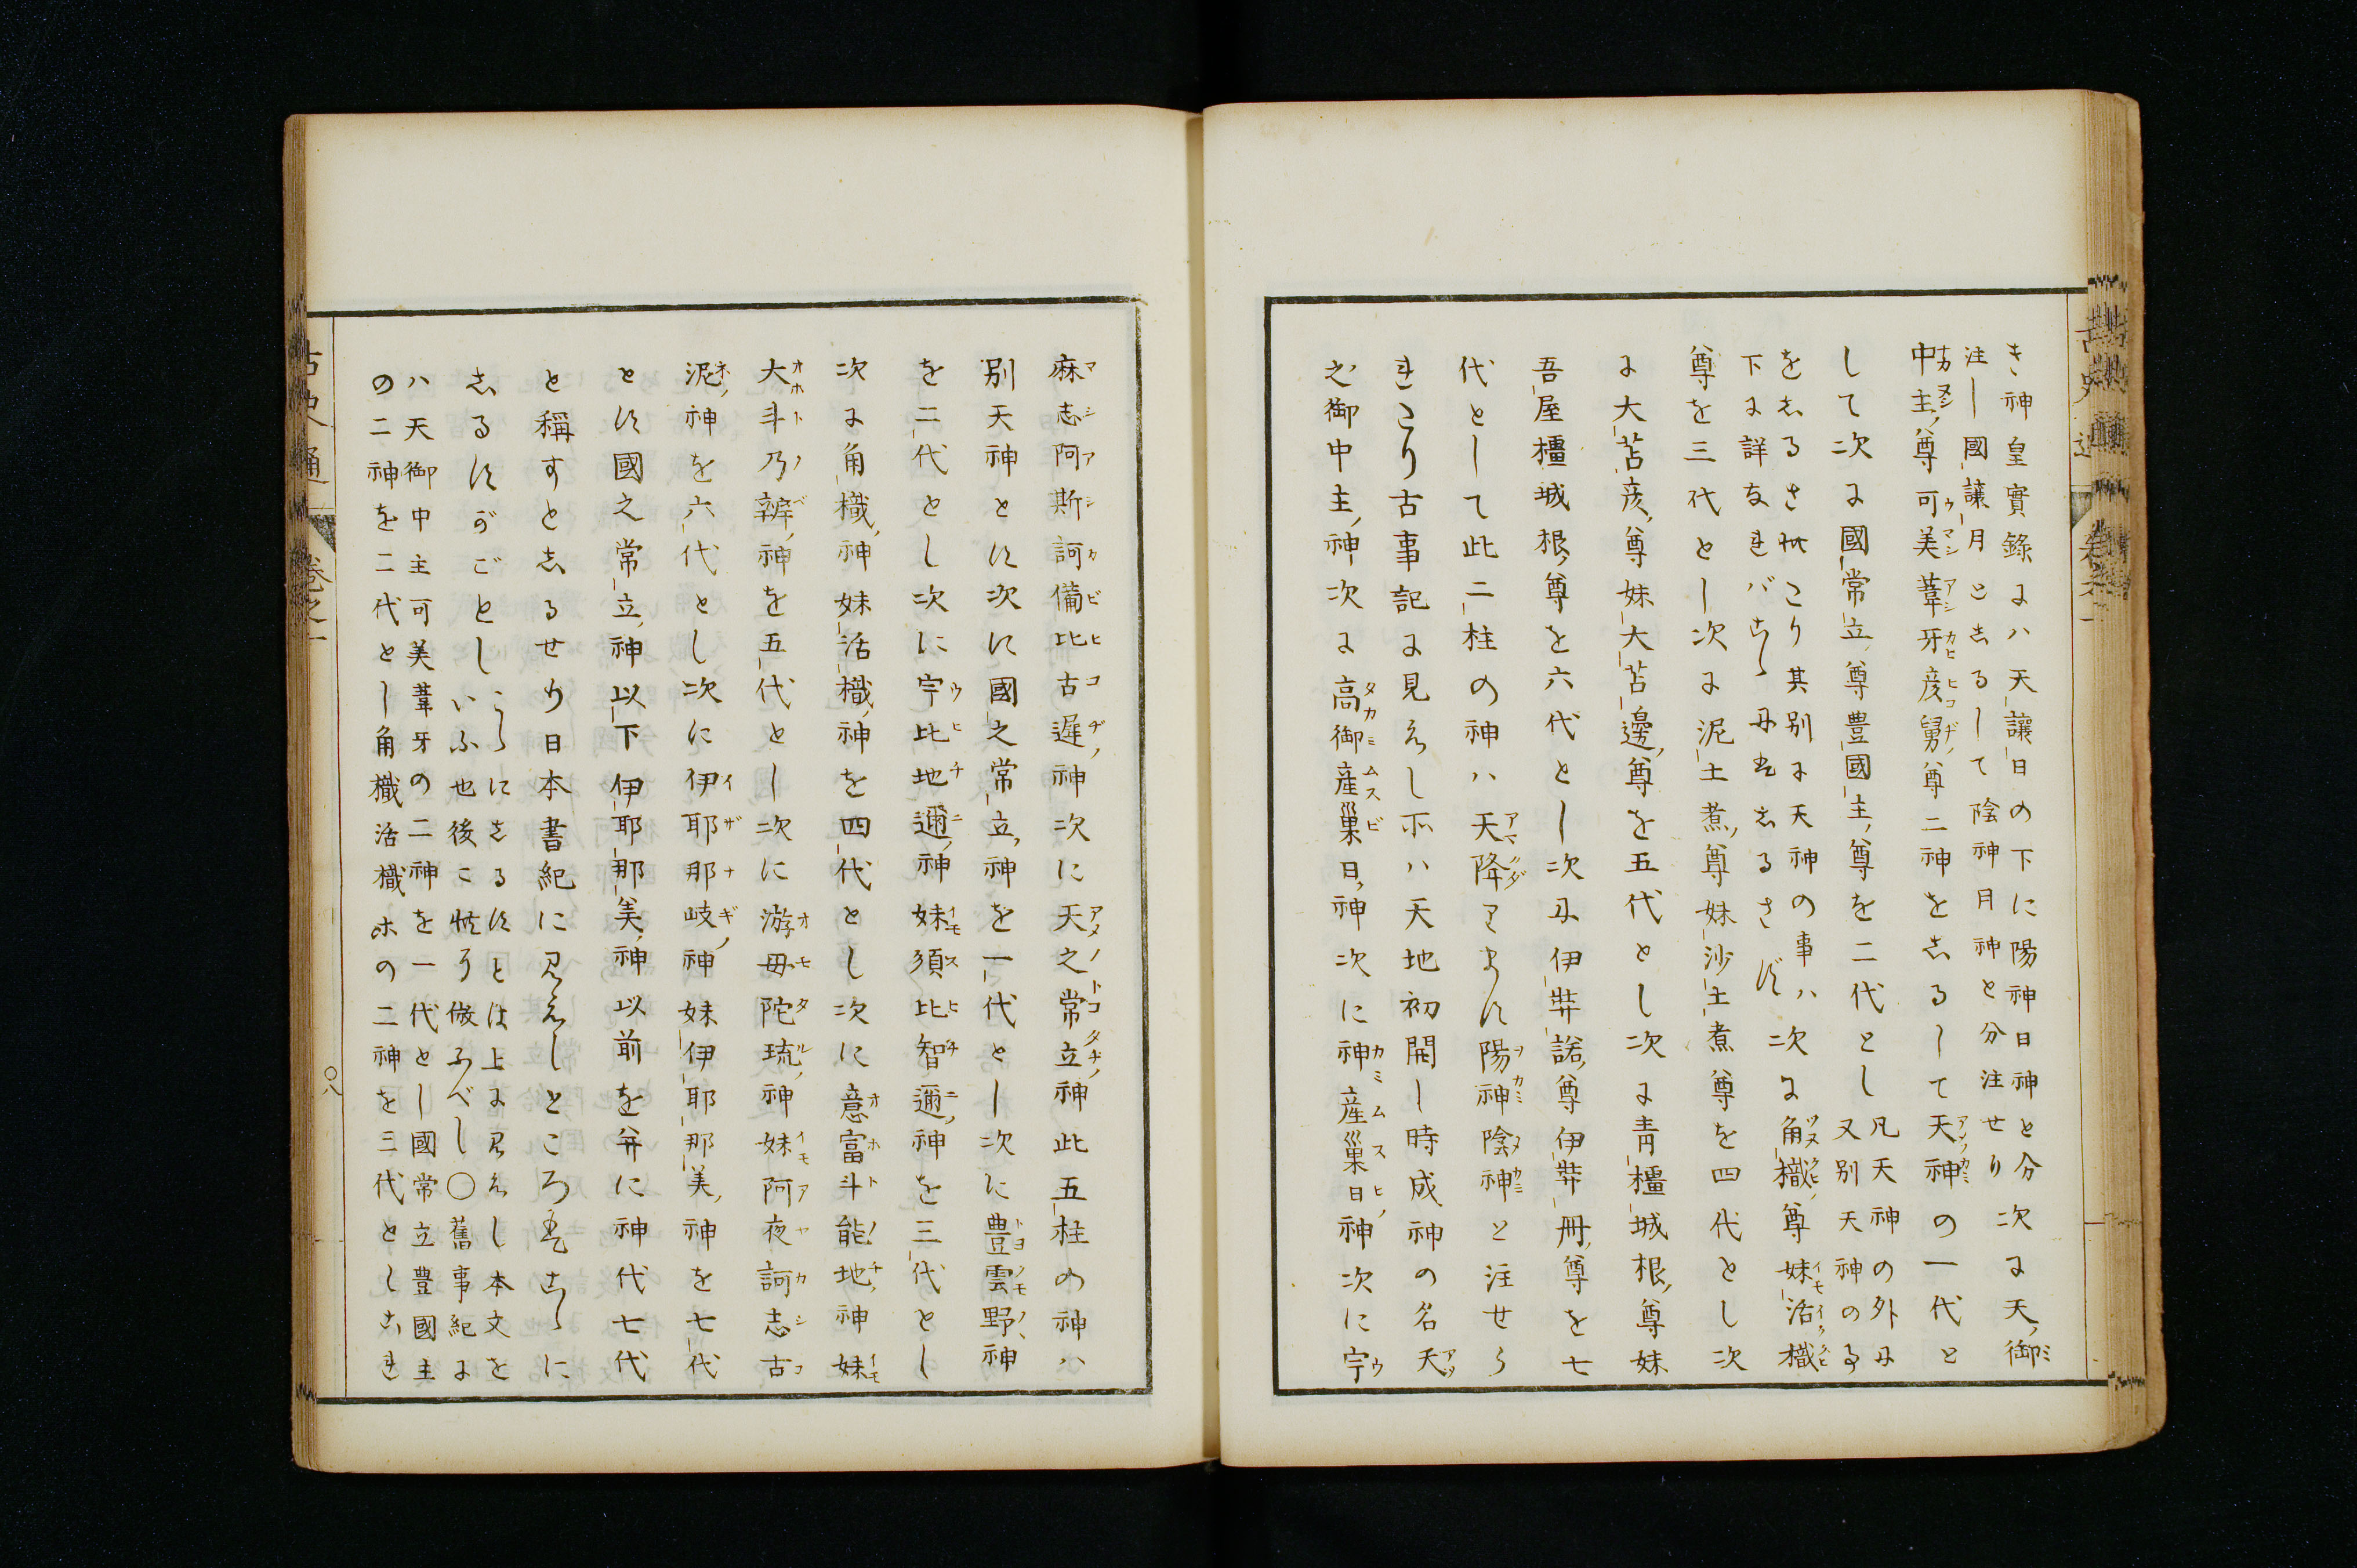 き神皇實錄に八天讓日の下に陽神日神と分次に天御
注し國讓月としるして陰神月神と分注せり
中主尊可美葦牙彦舅尊二神をしるして天神の一代と
して次に國常立尊豊國主尊を二代とし凡天神の外に
又別天神のる
をしるされたり其別に天神の事ハ次に角樴尊妹活樴
下に詳なればこゝにもしるさず
尊を三代とし次に泥土煮尊妹沙土煮尊を四代とし次
に大苫彦尊妹大苫邊尊を五代とし次に青橿城根尊妹
吾屋橿城根尊を六代とし次に伊弉諾尊伊弉冊尊を七
代として此二柱の神ハ天降ります陽神陰神と注せら
れたり古事記に見えし所ハ天地初開し時成神の名天
之御中主神次に高御産巣日神次に神産巣日神次に宇
麻志阿斯訶備比古遅神次に天之常立神此五柱の神ハ
別天神とす次に國之常立神を一代とし次に豊雲野神
を二代とし次に宇比地邇神妹須比智邇神を三代とし
次に角樴神妹活樴神を四代とし次に意富斗能地神妹
大斗乃辨神を五代とし次に游母陀琉神妹阿夜訶志古
泥神を六代とし次に伊耶那岐神妹伊耶那美神を七代
とす國之常立神以下伊耶那美神以前を并に神代七代
と稱すとしるせり日本書紀に見えしところもこゝに
しるすがごとしこゝにしるすとは上に見えし本文を
いふ也後これに倣ふべし〇舊事紀に
ハ天御中主可美葦牙の二神を一代とし國常立豊國主
の二神を二代とし角樴活樴ホの二神を三代としこれ
古史通
卷之一
〇八